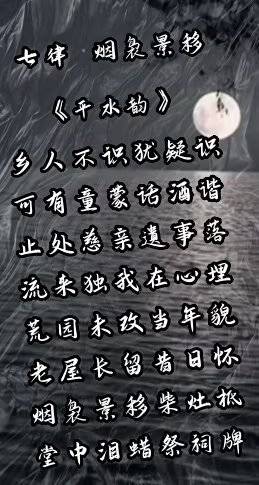 七律 烟袅景移
《平水韵》
乡人不识犹疑识
可有童蒙话酒谐
止处慈亲遗事落
流来独我在心埋
荒园未改当年貌
老屋长留昔日怀
烟袅景移柴灶柢
堂中泪蜡祭祠牌